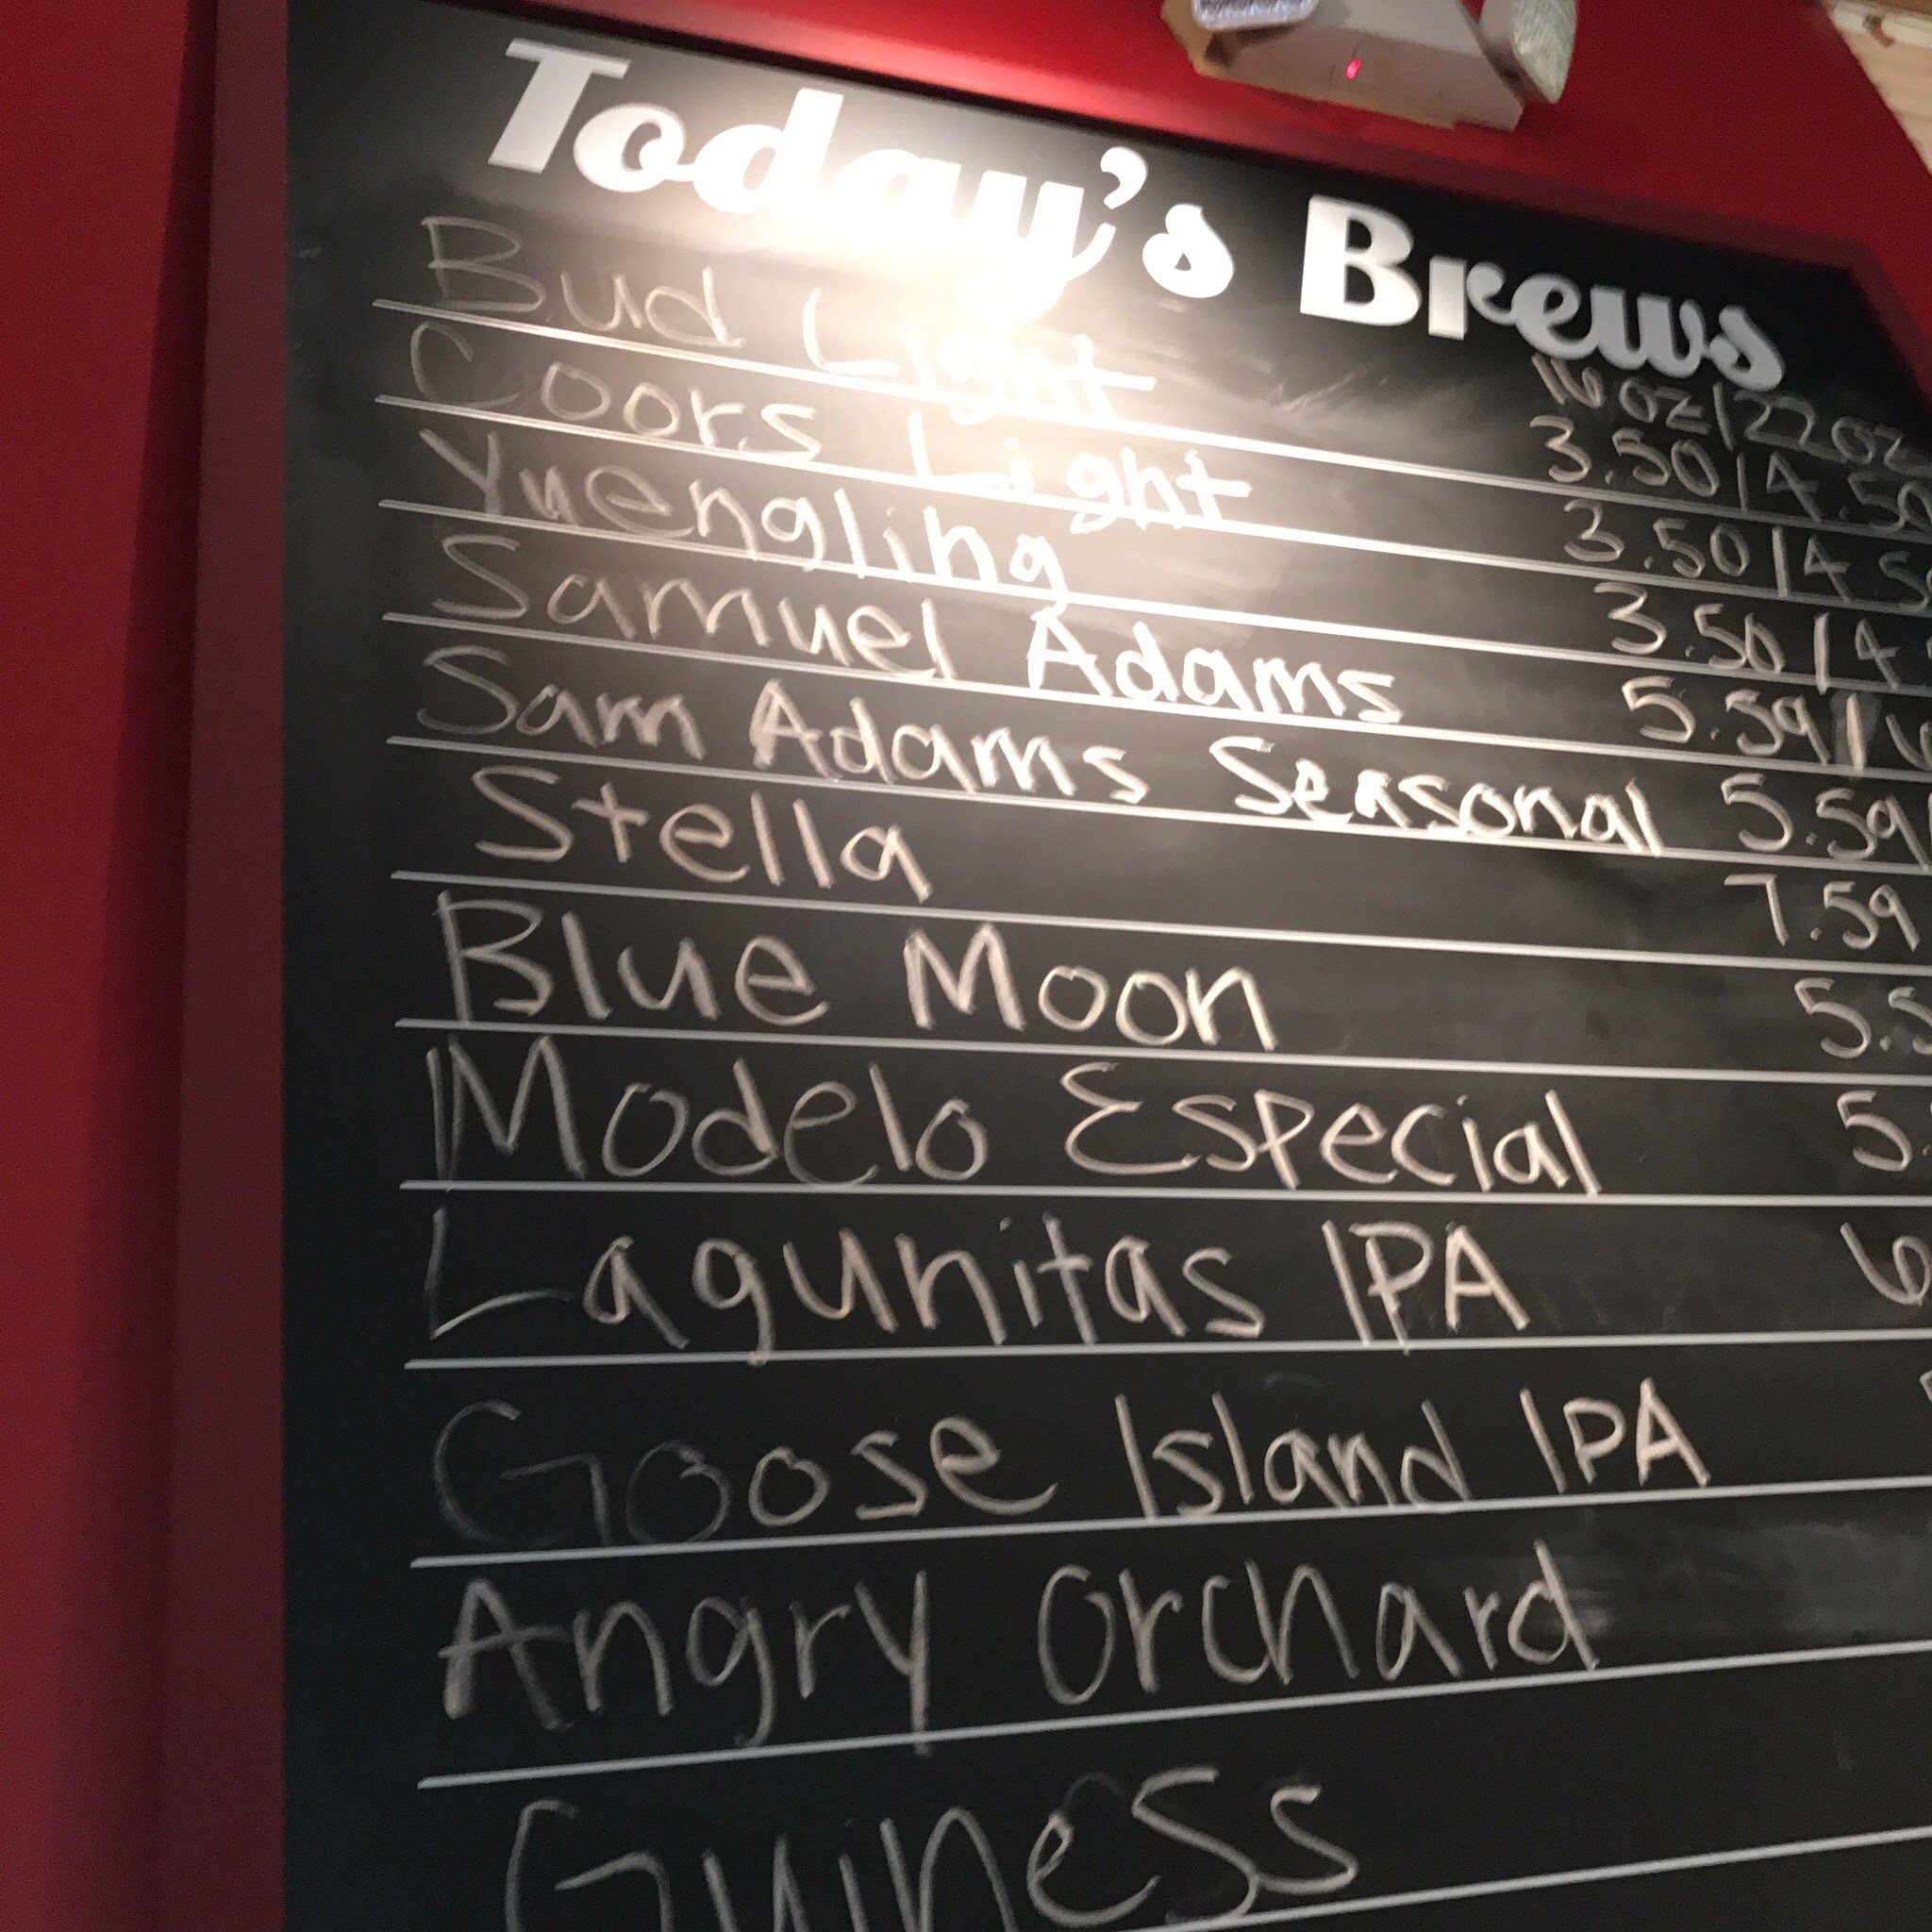 Today's Brews
16 oz/22 oz
Bud Light 3.50/4.50
Coors Light 3.50/4.5
Yuengling 3.50/4
Samuel Adams 5.59/6
Sam Adams Seasonal 5.59
Stella 7.59
Blue Moon 5.5
Modelo Especial 5.
Lagunitas IPA 6
Goose Island IPA
Angry Orchard
Guiness